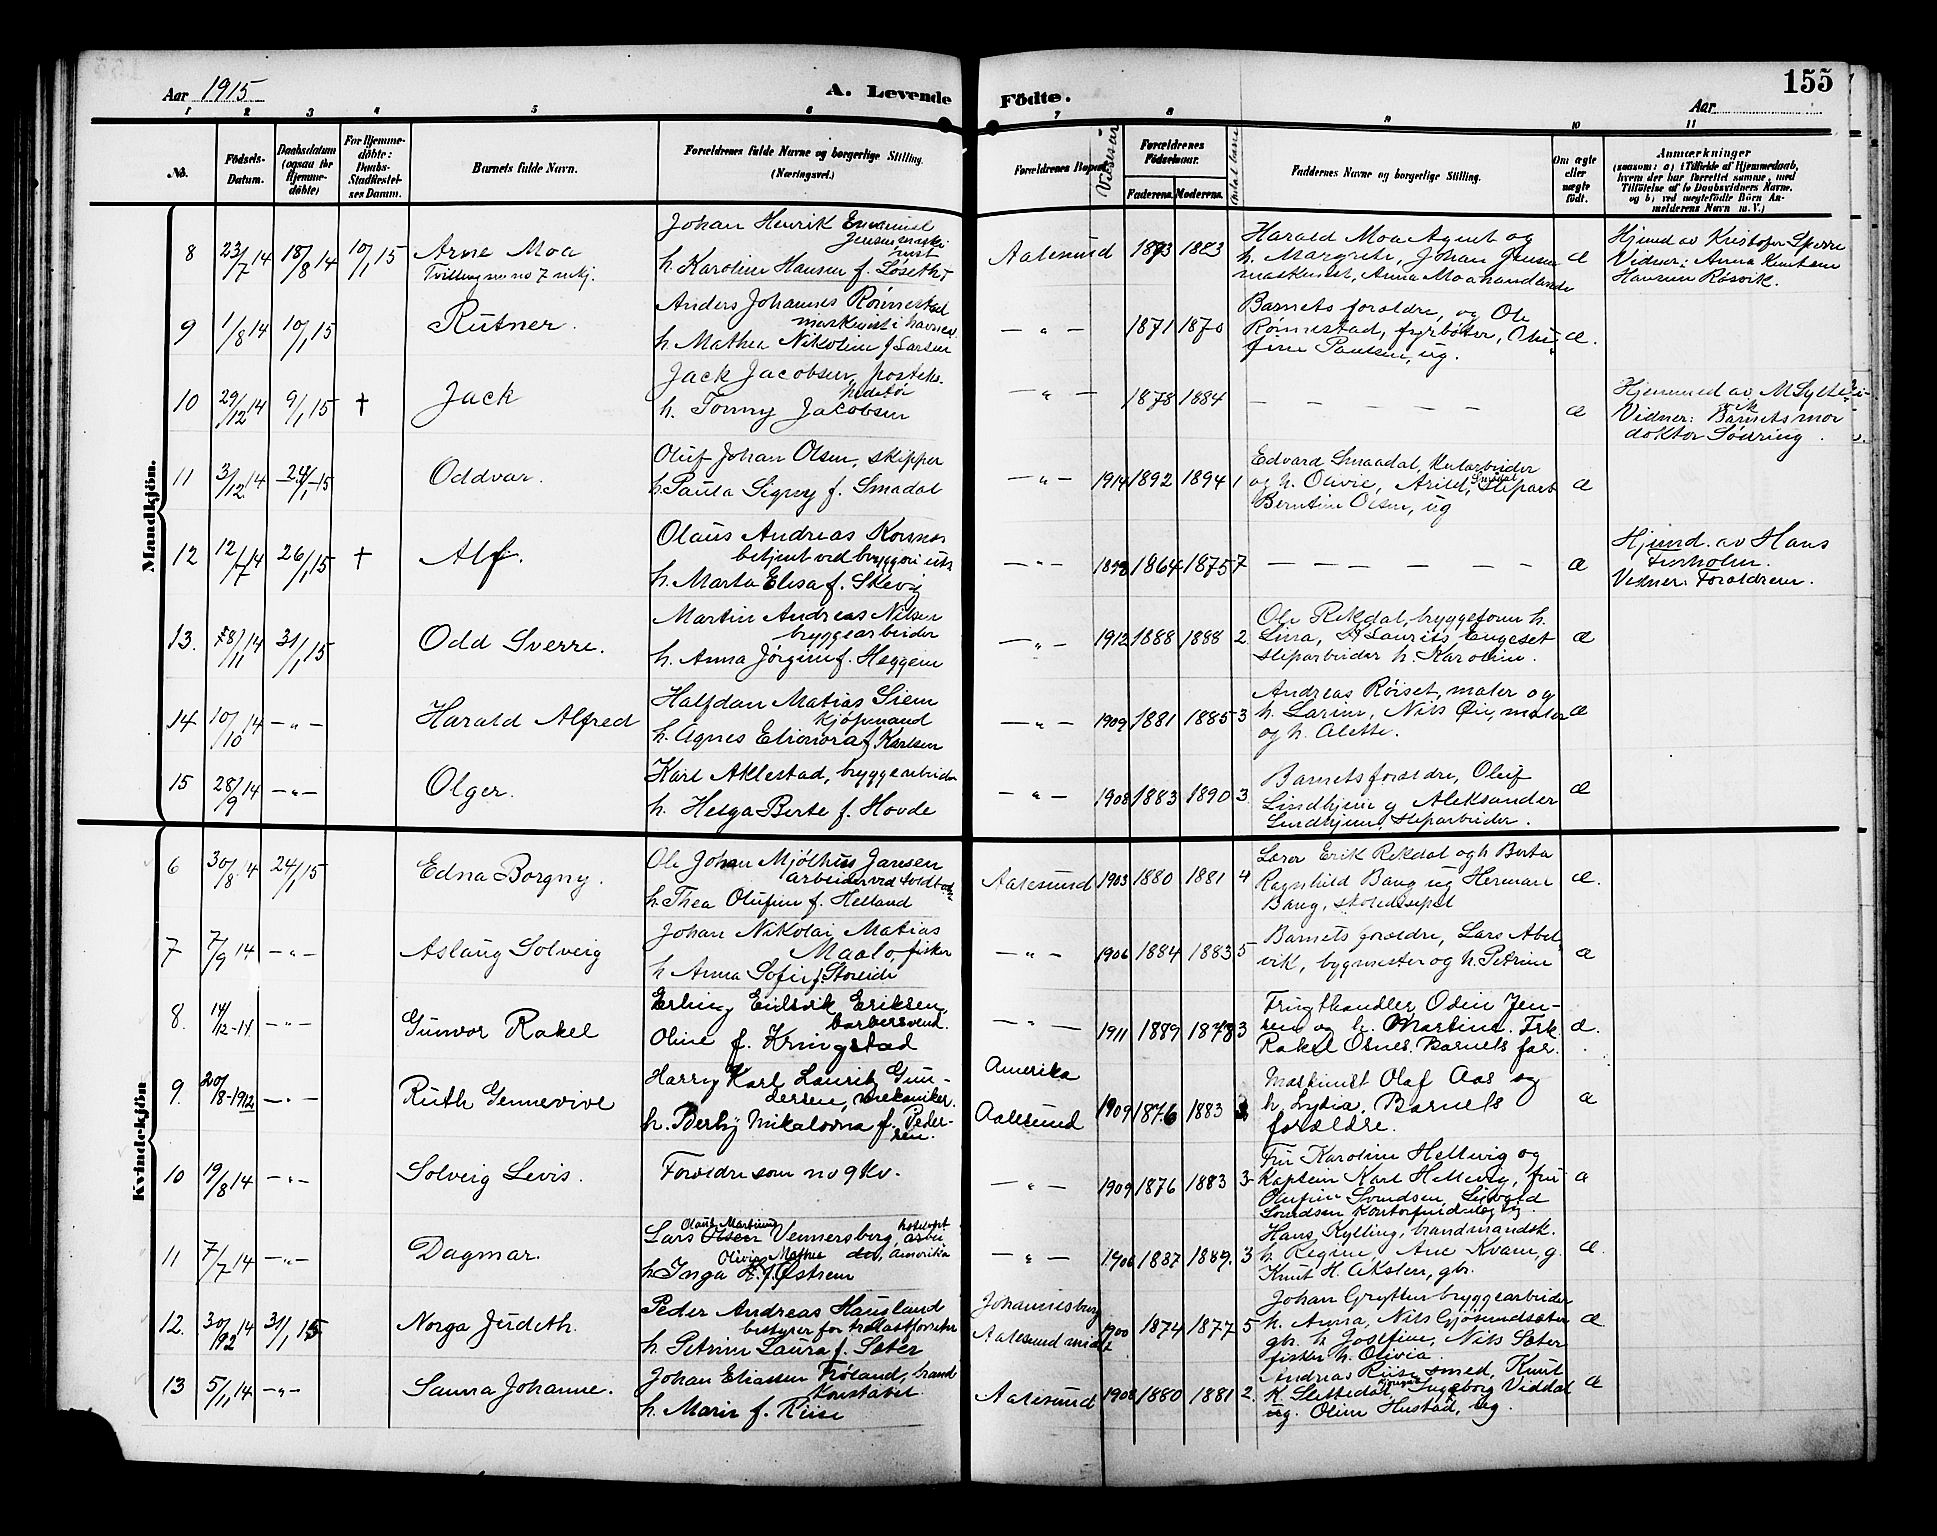 155
Aar 1915
A. Levende
Födte.
Aar
1 2 3 4 5 6
7 8 9 10 11
No.
Födsels-
Datum.
Daabsdatum
(ogsaa for
Hjemme-
döbte)
For Hjemme-
döbte:
Daabs-
Stadfæstel-
ses Datum.
Barnets fulde Navn.
Forældrenes fulde Navne og borgerlige Stilling.
(Næringsvei.)
Forældrenes Bopæl
Vielsesaar
Forældrenes
Födselsaar.
Faderens. Moderens.
Antal barn
Faddernes Navne og borgerlige Stilling.
Om ægte
eller
uægte
födt.
Anmærkninger
(saasom: a) i Tilfælde af Hjemmedaab,
hvem der har forrettet samme, med
Tilföielse af to Daabsvidners Navne.
og b) ved uægtefödte Börn An-
melderens Navn m. V.)
Mandkjön.
8 23/7 14 18/8 14 10/1 15 Arne Moa
Tvilling m no 7 mkj.
Johan Henrik Emanuel
Jensen maski
nist
h. Karoline Hansen f. Løseth
Aalesund 1873 1883
Harald Moa Agent og
h. Margrete, Johan Jensen
maskinist, Anna Moa handlende
æ
Hjemd av Kristofer Sperre
Vidner: Anna Knutsen
Hansine Røsvik.
9 1/8 14 10/1 15 Rutner.
Anders Johannes Rønnestad
maskinist i havnev.
h. Mathea Nikoline f Larsen
— " — 1871 1870
Barnets forældre, og Ole
Rønnestad, fyrbøter, Olu-
fine Paulsen, ug.
æ.
10 29/12 14 9/1 15 † Jack
Jack Jacobsen, posteks-
peditør
h. Tonny Jacobsen
— " — 1878 1884 — — — — —
æ
Hjemmed av M Sylte
Vidner: Barnets mor
doktor Sødring.
11 3/12 14 24/1 15 Oddvar.
Oluf Johan Olsen, skipper
h. Paula Signy f. Smadal
— " — 1914 1892 1894 1
Edvard Smaadal,
og h. Olivie, Arild Smadal, sliparb
Berntine Olsen, ug
æ
12 12/7 14 26/1 15 † Alf.
Olaus Andreas Kornes
betjent ved bryggeri uts
h. Marta Elisa f. Skevig
— " — 1898 1864 1875 7 — — — — — —
æ
Hjemd. av Hans
Fiskholm.
Vidner: Forældrene.
13. 28/11 14 31/1 15 Odd Sverre.
Martin Andreas Nilsen
bryggearbeider
h. Anna Jørgine f. Heggem
— " — 1912 1888 1888 2
Ole Rekdal, bryggeform h.
Lina, Laurits Engeset
sliparbeider h. Karoline.
æ
14 10/10 14 — " — Harald Alfred
Halfdan Matias Siem
kjøpmand
h. Agnes Elionora f Karlsen
— " — 1909 1881 1885 3
Andreas Røiset, maler og
h. Larine, Nils Øie, maler
og h. Alette.
æ
15 28/9 14 — " — Olger.
Karl Aklestad, bryggearbeider
h. Helga Berte f. Hovde
— " — 1908 1883 1890 3
Barnets foræld re, Oluf
Lindhjem g Aleksander
Lindhjem, sliparbeider.
æ
Kvindekjön
6 30/8 14 24/1 15 Edna Borgny.
Ole Johan Mjølhus Jansen
arbeider ved
h. Thea Olufine f. Helland
Aalesund 1903 1880 1881 4
Lærer Erik Rekdal og h Berta
Ragnhild Bang ug Herman
Bang,
æ.
7 7/9 14 — " — Aslaug Solveig
Johan Nikolai Matias
Maalø, fisker
h. Anna Sofie f. Storeide
— " — 1906 1884 1883 5
Barnets foræld re, Lars Abel-
vik, bygmester og h. Petrine
æ
8. 14/12-14 — " — Gunvor Rakel
Erling Eidsvik Eriksen,
barbersvend.
Oline f. Kringstad
— " — 1911 1889 1878 3
Frugthandler Odin Jen-
sen og h. Martine. Frk.
Rakel Osnes. Barnets far.
æ.
9. 20/8-1912 — " — Ruth Gennevive
Harry Karl Laurits Gun-
dersen, mekaniker.
h. Berby Mikalovna f. Peder-
sen.
Amerika
Aalesund 1909 1876 1883
Maskinist Olaf Aas og
h. Lydia. Barnets
forældre.
æ
10 19/8 14 — " — Solveig Levis.
Forældre som no 9 Kv.
— " — 1909 1876 1883 3
Fru Karoline Hellevig og
Kaptein Karl Hellevig, fru
Olufine Svendsen, Sigvald
Svendsen kontorfuldmægtig.
æ
11 7/7 14 — " — Dagmar.
Lars Olaus Martinus Vennersborg,
Amerika
h. Inga Olivia Mathea f. Østrem
— " — 1906 1887 1889. 3
Hans Kylling, brandmandsk.
h. Regine, Ane Kvam, g.
Knut H. Akslen, gbr.
æ.
12. 30/12 14 31/1 15 Norga Judeth.
Peder Andreas Hausland
bestyrer for trælastforretn
h. Petrine Laura f. Sæter
Johannesburg
Aalesund 1900 1874 1877 5
Johan Grytten bryggearbeider
h. Anna, Nils Gjøsundsæter
gbr. h. Josefine, Nils Sæter
fisker h. Olivia
æ
13 5/11 14 — " — Sanna Johanne.
Johan Eliassen Frøland, brand
konstabel
h. Marie f. Riise
Aalesund 1908 1880 1881 2.
Andreas Riise smed, Knut
K. Slettedal, Ingeborg Viddal
ug. Oline Hustad, ug.
æ